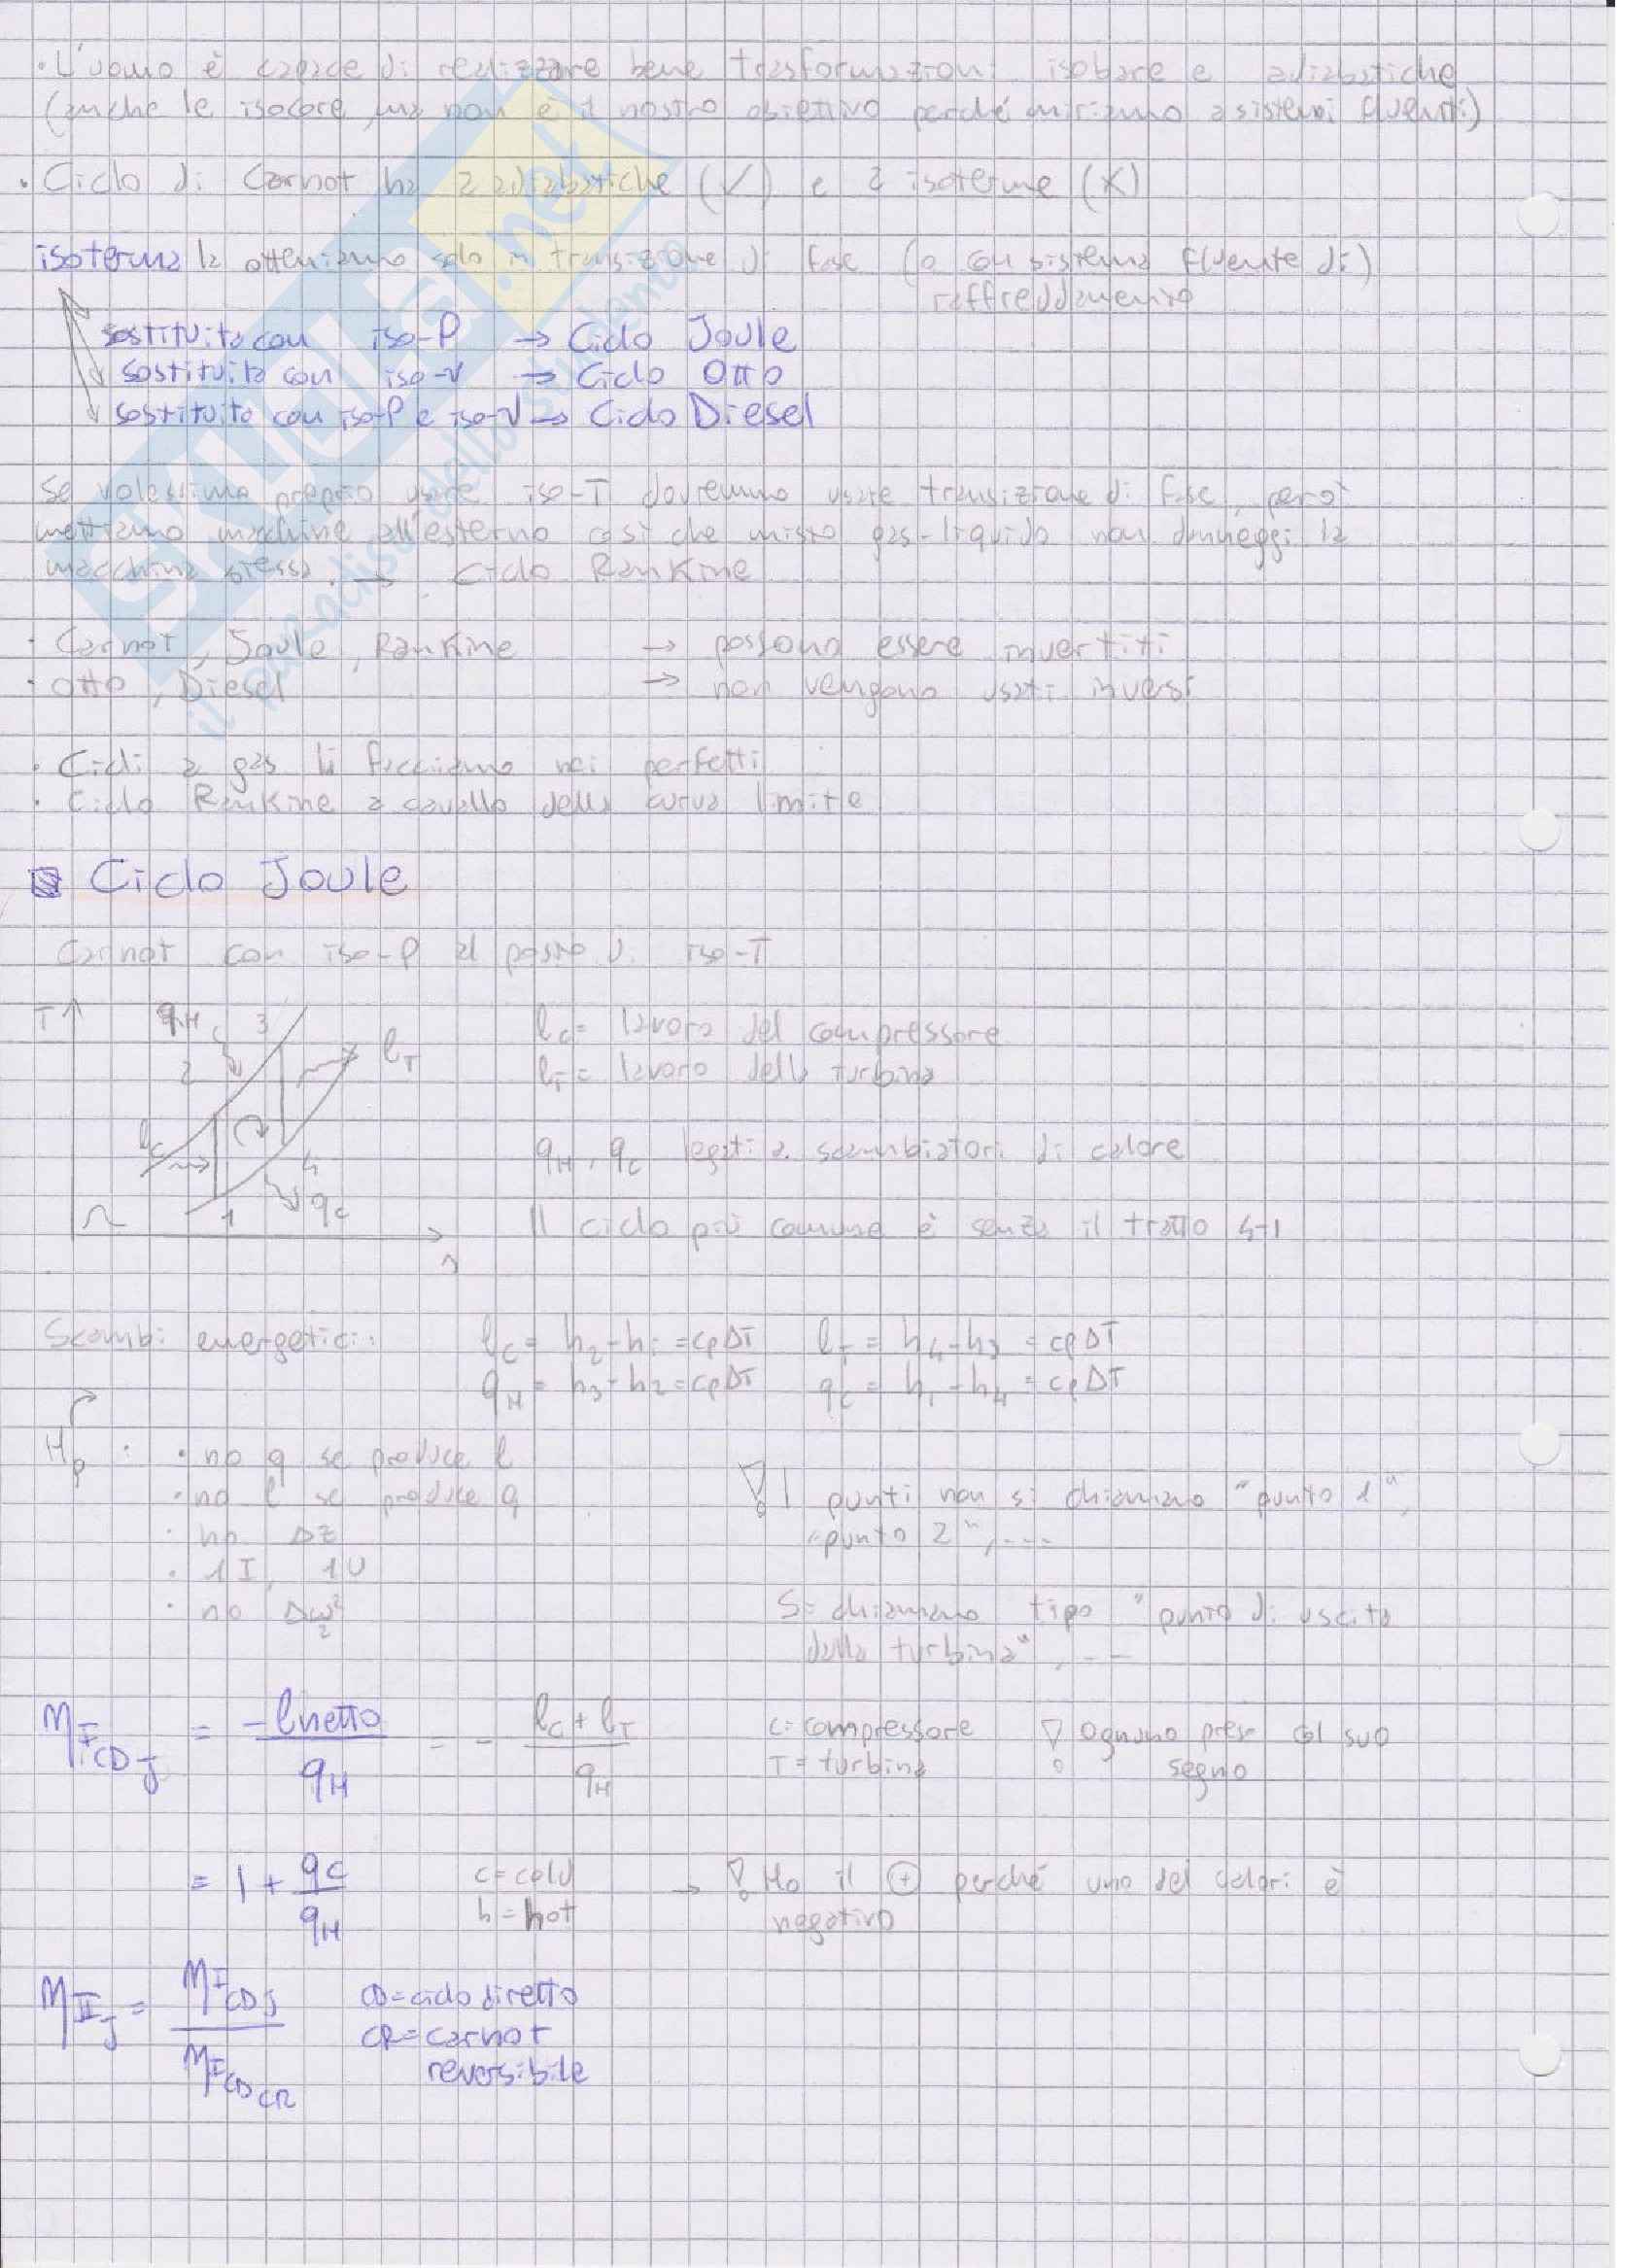 • L'uomo è capace di realizzare bene trasformazioni isobare e adiabatiche
(anche le isocore, ma non è il nostro obiettivo perché miriamo a sistemi fluenti)
• Ciclo di Carnot ha 2 adiabatiche (✓) e 2 isoterme (X)
isoterma la otteniamo solo in transizione di fase (o con sistema fluente di)
raffreddamento
sostituita con iso-P → Ciclo Joule
sostituita con iso-v → Ciclo Otto
sostituita con iso-P e iso-v → Ciclo Diesel
Se volessimo proprio usare iso-T dovremmo usare transizione di fase, però
mettiamo macchine all'esterno così che misto gas-liquido non danneggi la
macchina stessa. → Ciclo Rankine
• Carnot, Joule, Rankine → possono essere invertiti
• Otto, Diesel → non vengono usati inversi
• Cicli a gas li facciamo noi perfetti
• Ciclo Rankine a cavallo della curva limite
Ciclo Joule
Carnot con iso-P al posto di iso-T
T qH 3 lT
2
lC
4
1 qC
s
lC = lavoro del compressore
lT = lavoro della turbina
qH, qC legati a scambiatori di calore
Il ciclo più comune è senza il tratto 4-1
Scambi energetici: lC = h2-h1 = cpΔT lT = h4-h3 = cpΔT
qH = h3-h2 = cpΔT qC = h1-h4 = cpΔT
Hp: • no q se produce l
• no l se produce q
• no Δz
• 1I, 1U
• no Δw²/2
! I punti non si chiamano "punto 1",
"punto 2", ---
Si chiamano tipo "punto di uscita
della turbina", --
ηI CD J = -lnetto/qH = - (lC + lT)/qH C = compressore ! Ognuno preso col suo
T = turbina segno
= 1 + qC/qH c = cold → ! Ho il ⊕ perché uno dei calori è
h = hot negativo
ηII J = ηI CD J / ηI CD CR CD = ciclo diretto
CR = carnot
reversibile
SKUOLA.net
il paradiso dello studente